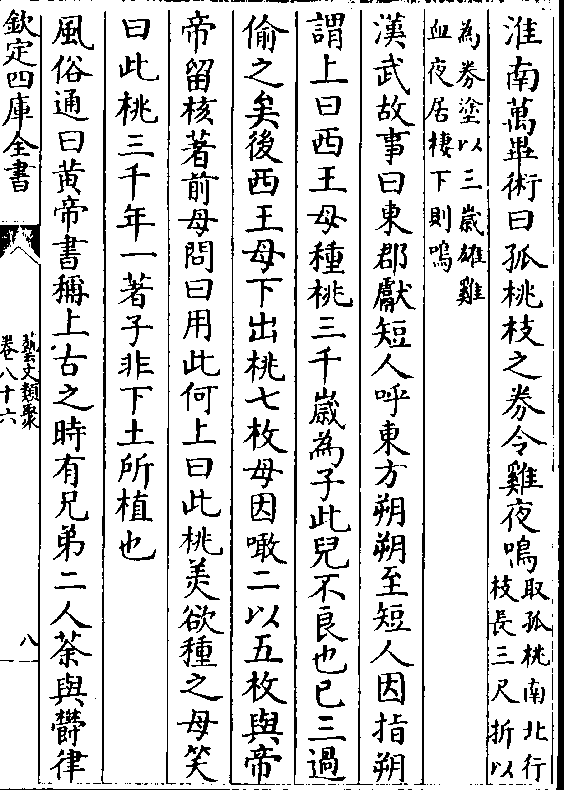 淮南萬畢術曰孤桃枝之券令雞夜鳴取孤桃南北行枝長三尺折以
為券塗以三歲雄雞血夜居棲下則鳴
漢武故事曰東郡獻短人呼東方朔朔至短人因指朔
謂上曰西王母種桃三千歲為子此兒不良也已三過
偷之矣後西王母下出桃七枚母因噉二以五枚與帝
帝留核著前母問曰用此何上曰此桃美欲種之母笑
曰此桃三千年一著子非下土所植也
風俗通曰黄帝書稱上古之時有兄弟二人荼與鬱律
欽定四庫全書
藝文類聚
卷八十六
八